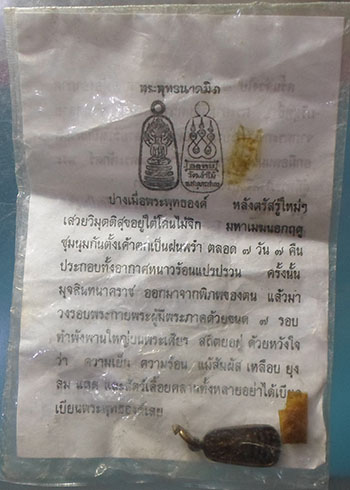 พระพุทธนาคมิต
ปางเมื่อพระพุทธองค์ หลังตรัสรู้ใหม่ๆ
เสวยวิมุตติสุขอยู่ใต้โคนไม้จิก มหาเมฆนอกฤดู
ชุมนุมกันตั้งเค้าตกเป็นฝนพรำ ตลอด ๗ วัน ๗ คืน
ประกอบทั้งอากาศหนาวร้อนแปรปรวน ครั้งนั้น
มุจลินทนาคราช ออกมาจากพิภพของตน แล้วมา
วงรอบพระกายพระผู้มีพระภาคด้วยขนด ๗ รอบ
ทำพังพานใหญ่บนพระเศียร สถิตอยู่ ด้วยหวังใจ
ว่า ความเย็น ความร้อน แม้สัมผัส เหลือบ ยุง
ลม แดด และสัตว์เลื้อยคลานทั้งหลายอย่าได้เบียด
เบียนพระพุทธองค์เลย